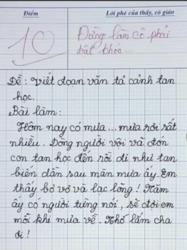 Điểm
Lời phê của thầy, cô giáo
10
Đừng làm cô phải
bật khóc...
Đề: Viết đoạn văn tả cảnh tan
học.
Bài làm:
Hôm nay có mưa... mưa rơi rất
nhiều. Dòng người vội và đón
con tan học đến rồi đi như tan
biến dần sau màn mưa ấy. Em
thấy bơ vơ và lạc lõng! Năm
ấy có người từng nói, sẽ đợi em
mỗi khi mưa về. Nhớ lắm cha
ơi!